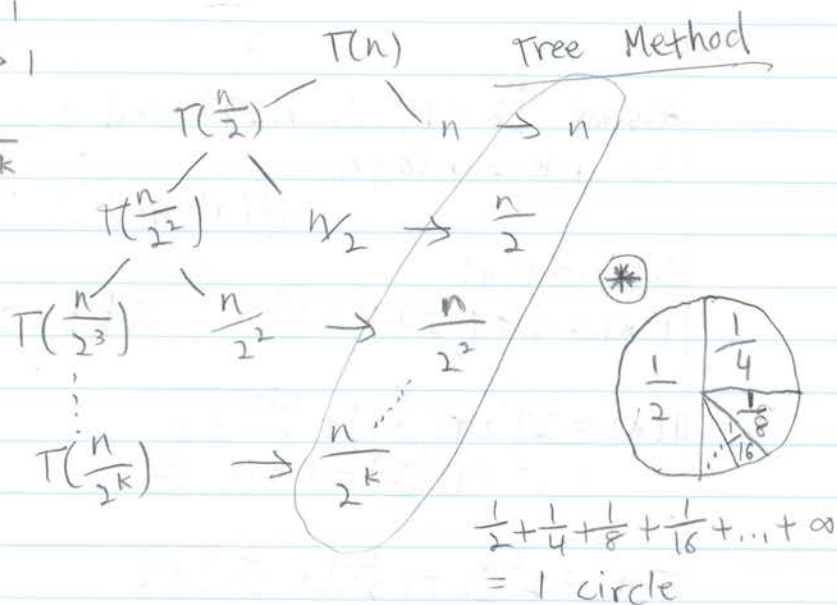 1
> 1
k
T(n) Tree Method
T(n/2) n → n
T(n/2²) n/2 → n/2
T(n/2³) n/2² → n/2²
T(n/2ᵏ) → n/2ᵏ
*
1/2 1/4 1/8 1/16
1/2 + 1/4 + 1/8 + 1/16 + ... + ∞
= 1 circle